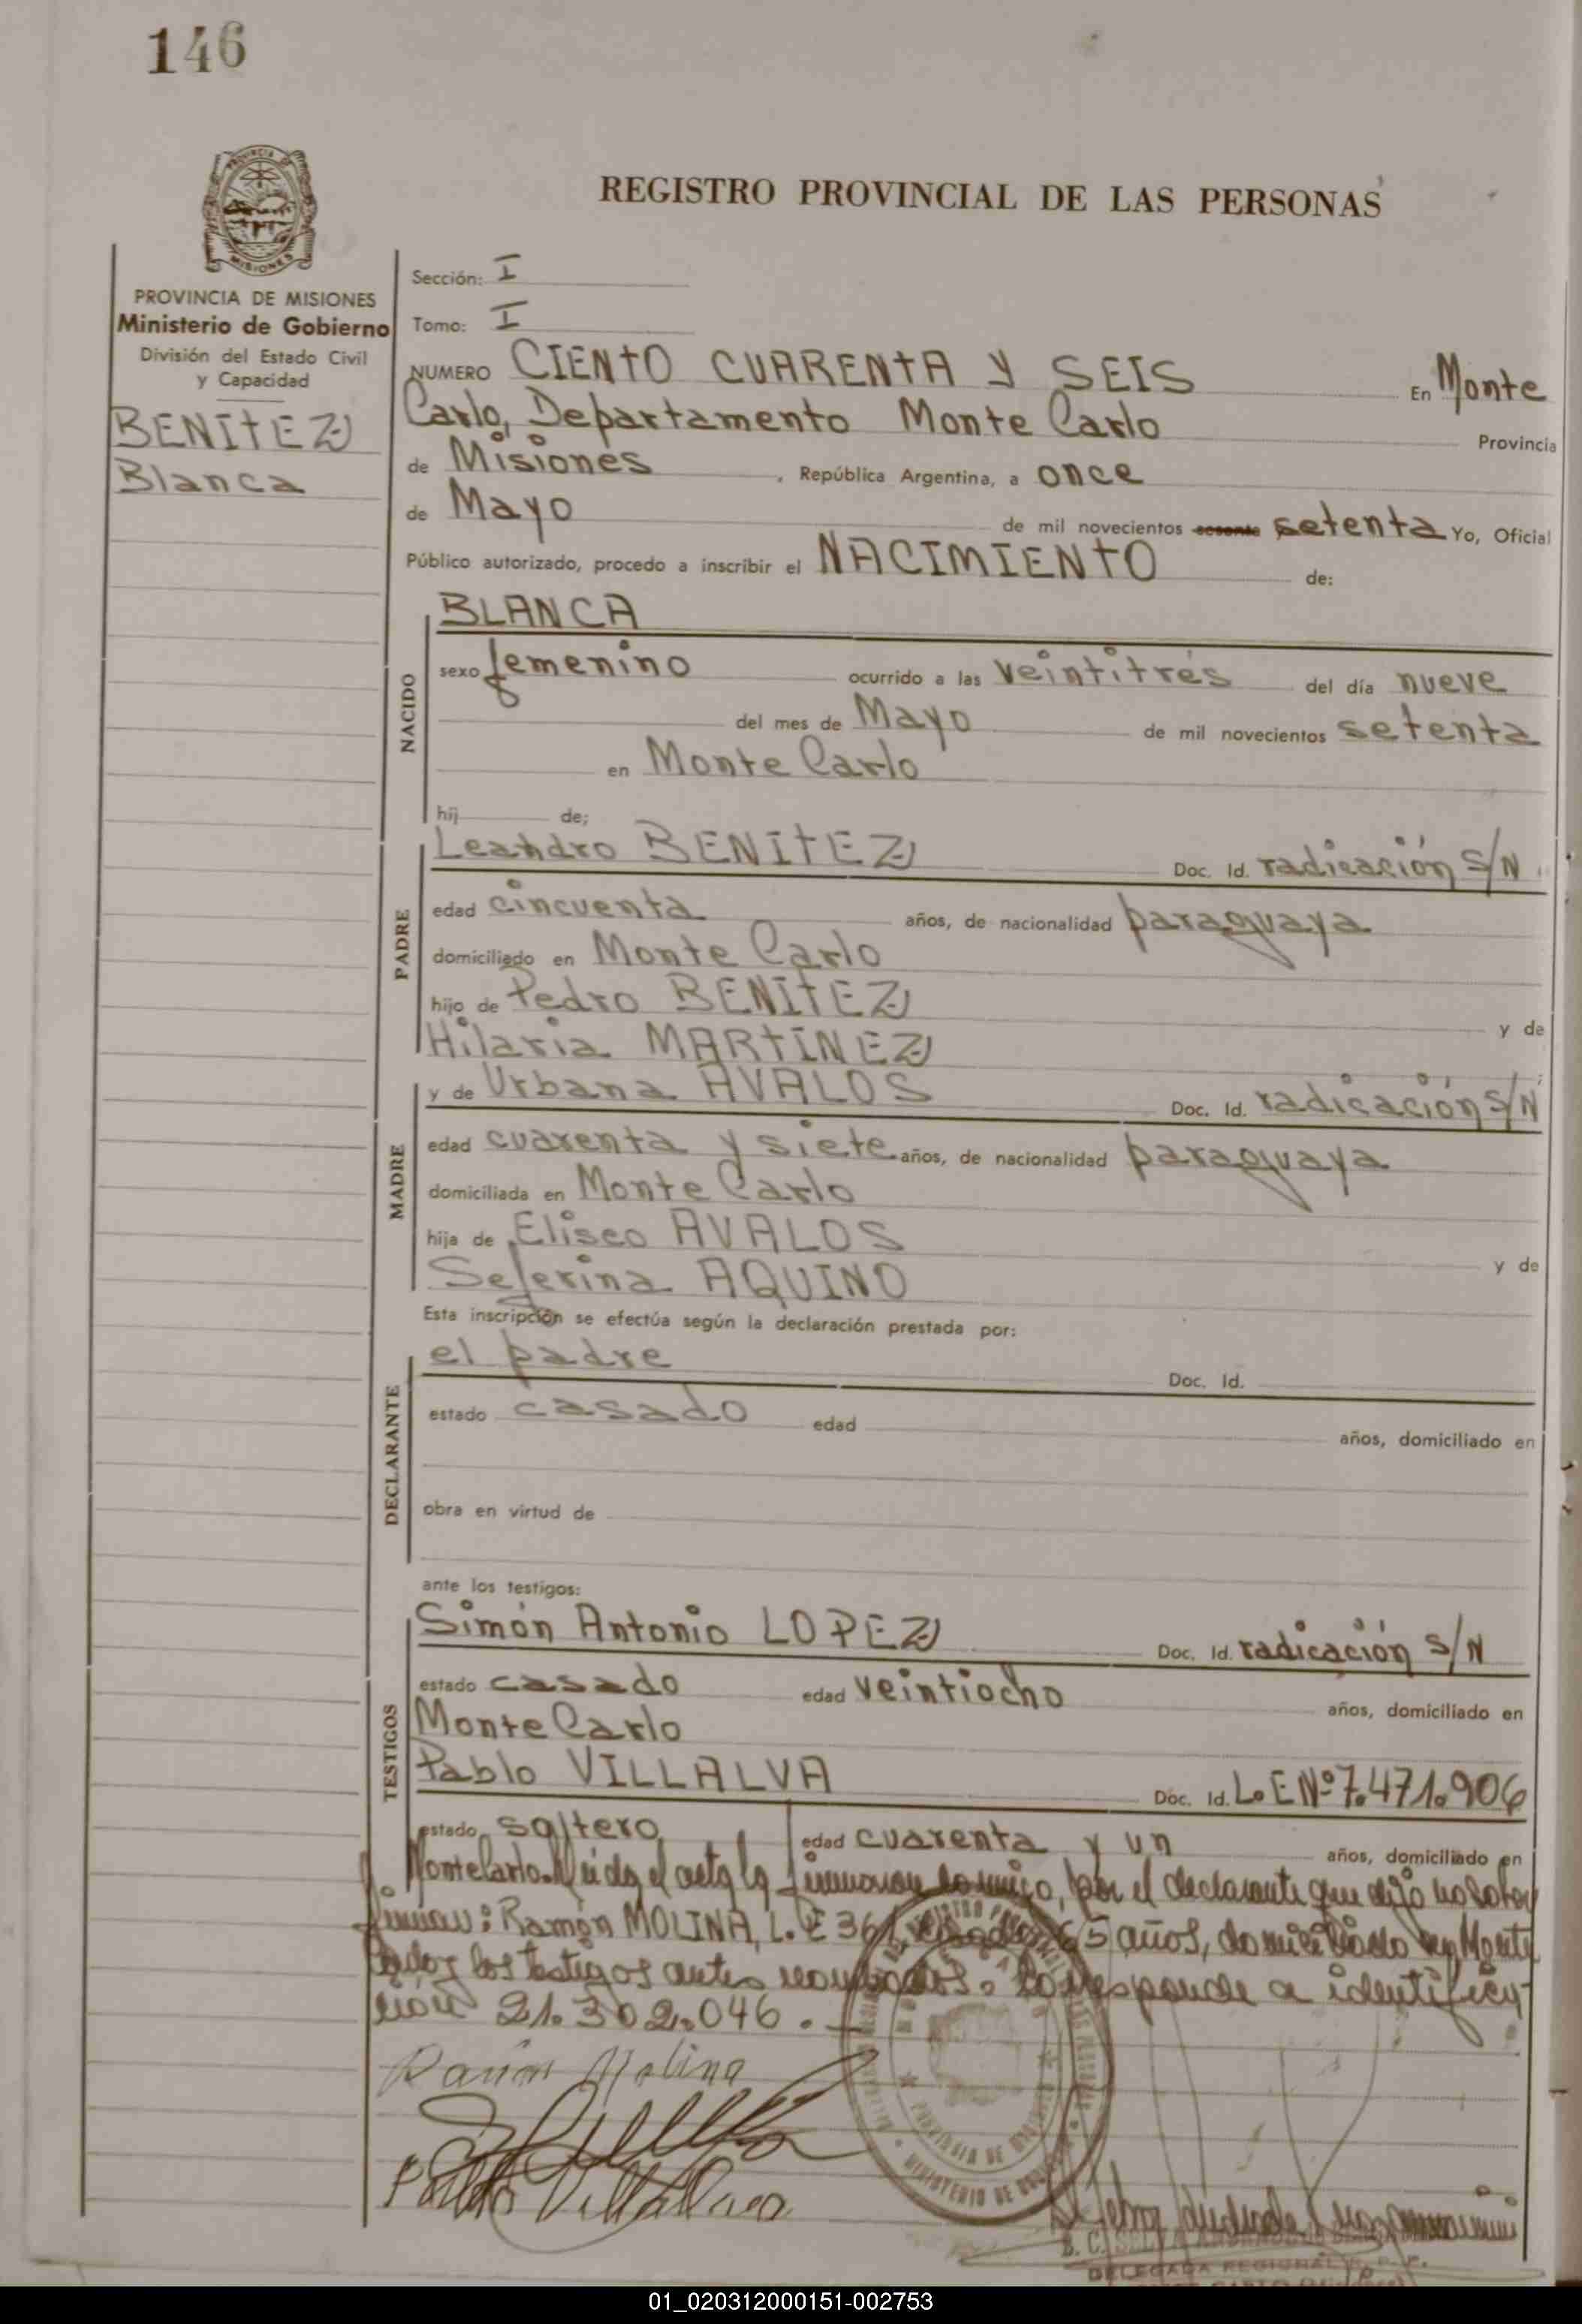 146
REGISTRO PROVINCIAL DE LAS PERSONAS
PROVINCIA DE MISIONES
Ministerio de Gobierno
División del Estado Civil
y Capacidad
BENITEZ
Blanca
Sección: I
Tomo: I
NUMERO CIENTO CUARENTA Y SEIS En Monte
Carlo, Departamento Monte Carlo Provincia
de Misiones, República Argentina, a once
de Mayo de mil novecientos setenta Yo, Oficial
Público autorizado, procedo a inscribir el NACIMIENTO de:
BLANCA
NACIDO
sexo femenino ocurrido a las veintitrés del día nueve
del mes de Mayo de mil novecientos setenta
en Monte Carlo
hij de;
PADRE
Leandro BENITEZ Doc. Id. radicación S/N
edad cincuenta años, de nacionalidad paraguaya
domiciliado en Monte Carlo
hijo de Pedro BENITEZ y de
Hilaria MARTINEZ
MADRE
y de Urbana AVALOS Doc. Id. radicación S/N
edad cuarenta y siete años, de nacionalidad paraguaya
domiciliada en Monte Carlo
hija de Eliseo AVALOS y de
Seferina AQUINO
Esta inscripción se efectúa según la declaración prestada por:
DECLARANTE
el padre Doc. Id.
estado casado edad años, domiciliado en
obra en virtud de
ante los testigos:
TESTIGOS
Simón Antonio LOPEZ Doc. Id. radicación S/N
estado casado edad veintiocho años, domiciliado en
Monte Carlo
Pablo VILLALVA Doc. Id. L.E Nº 7.471.906
estado soltero edad cuarenta y un años, domiciliado en
Montecarlo. Leida el acta la firmaron conmigo, por el declarante que dijo no saber
firmar: Ramón MOLINA, L.E 65 años, domiciliado en Monte
Carlo y los testigos antes nombrados. Corresponde a identifica-
ción 21.302.046.-
Ramón Molina
Pablo Villalva
DELEGADA REGIONAL
01_020312000151-002753